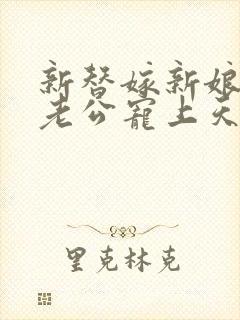 新替嫁新娘
老公宠上天
里克林克